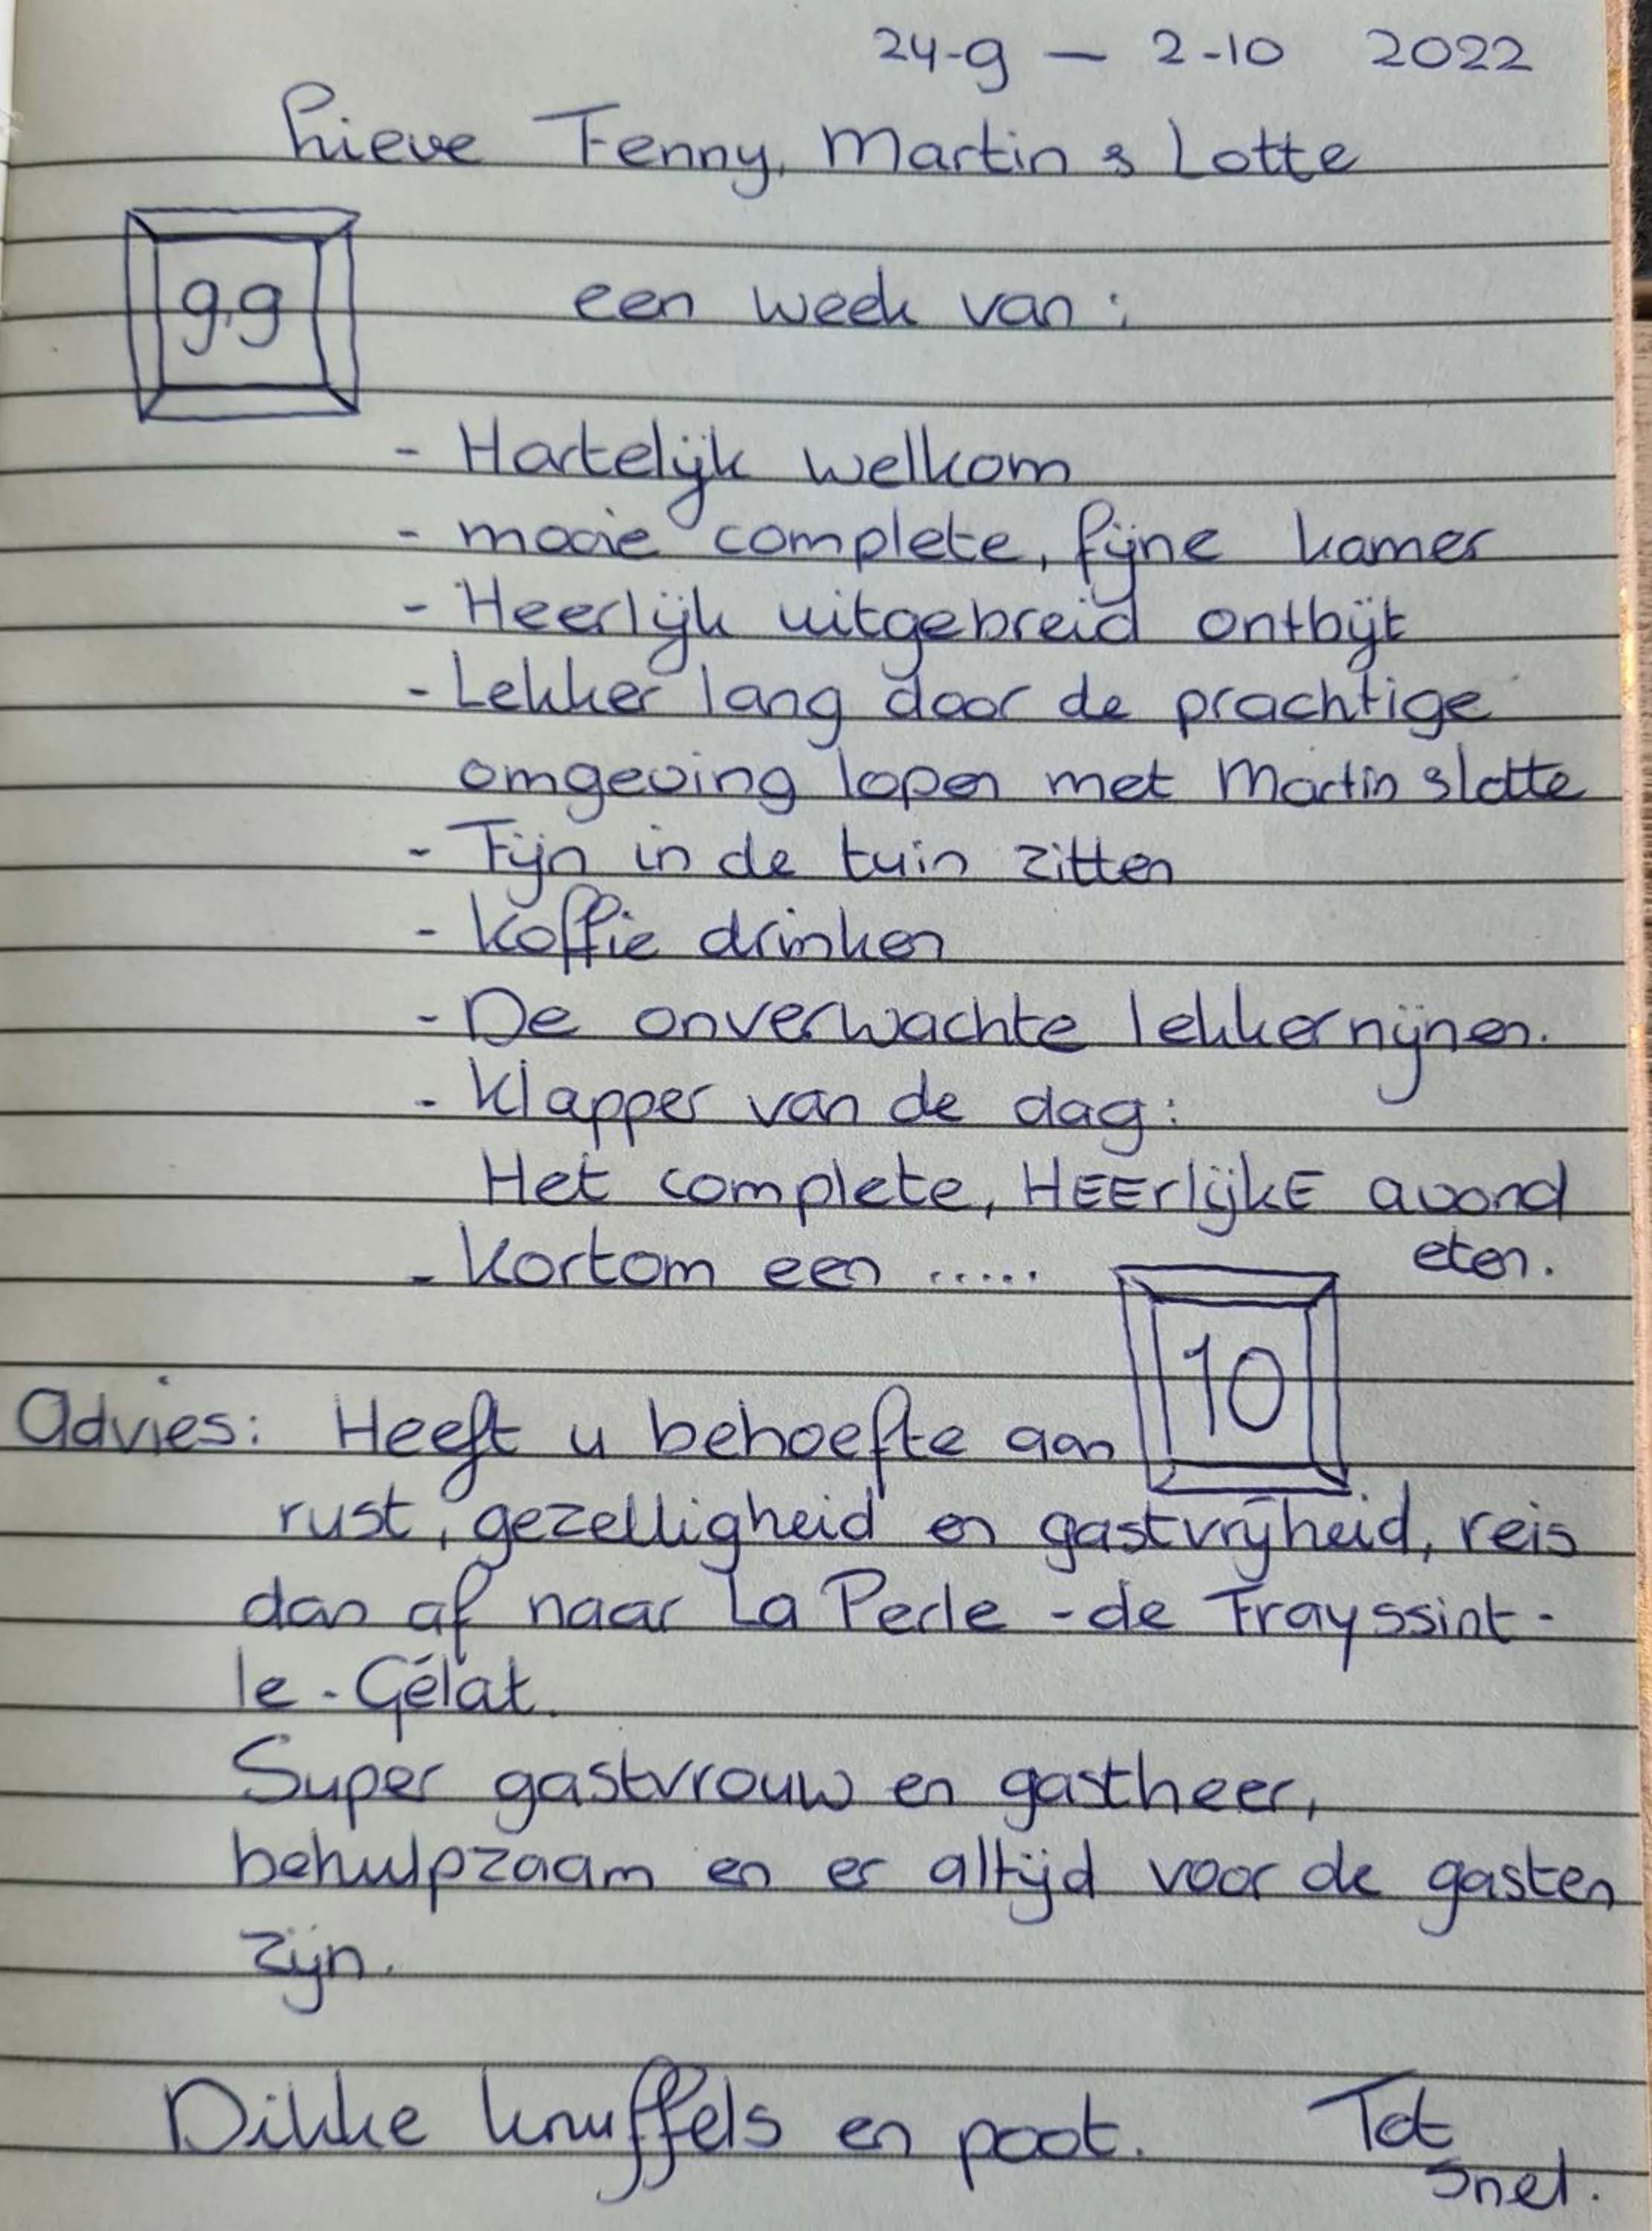 24-9 — 2-10 2022
Lieve Fenny, Martin & Lotte
9,9 een week van:
- Hartelijk welkom
- mooie complete, fijne kamer
- Heerlijk uitgebreid ontbijt
- Lekker lang door de prachtige
omgeving lopen met Martin & Lotte
- Fijn in de tuin zitten
- Koffie drinken
- De onverwachte lekkernijnen.
- Klapper van de dag:
Het complete, HEErlijkE avond
eten.
- Kortom een .....
10
Advies: Heeft u behoefte aan
rust, gezelligheid en gastvrijheid, reis
dan af naar La Perle - de Frayssint -
le - Gélat.
Super gastvrouw en gastheer,
behulpzaam en er altijd voor de gasten
zijn.
Dikke knuffels en poot. Tot
snel.